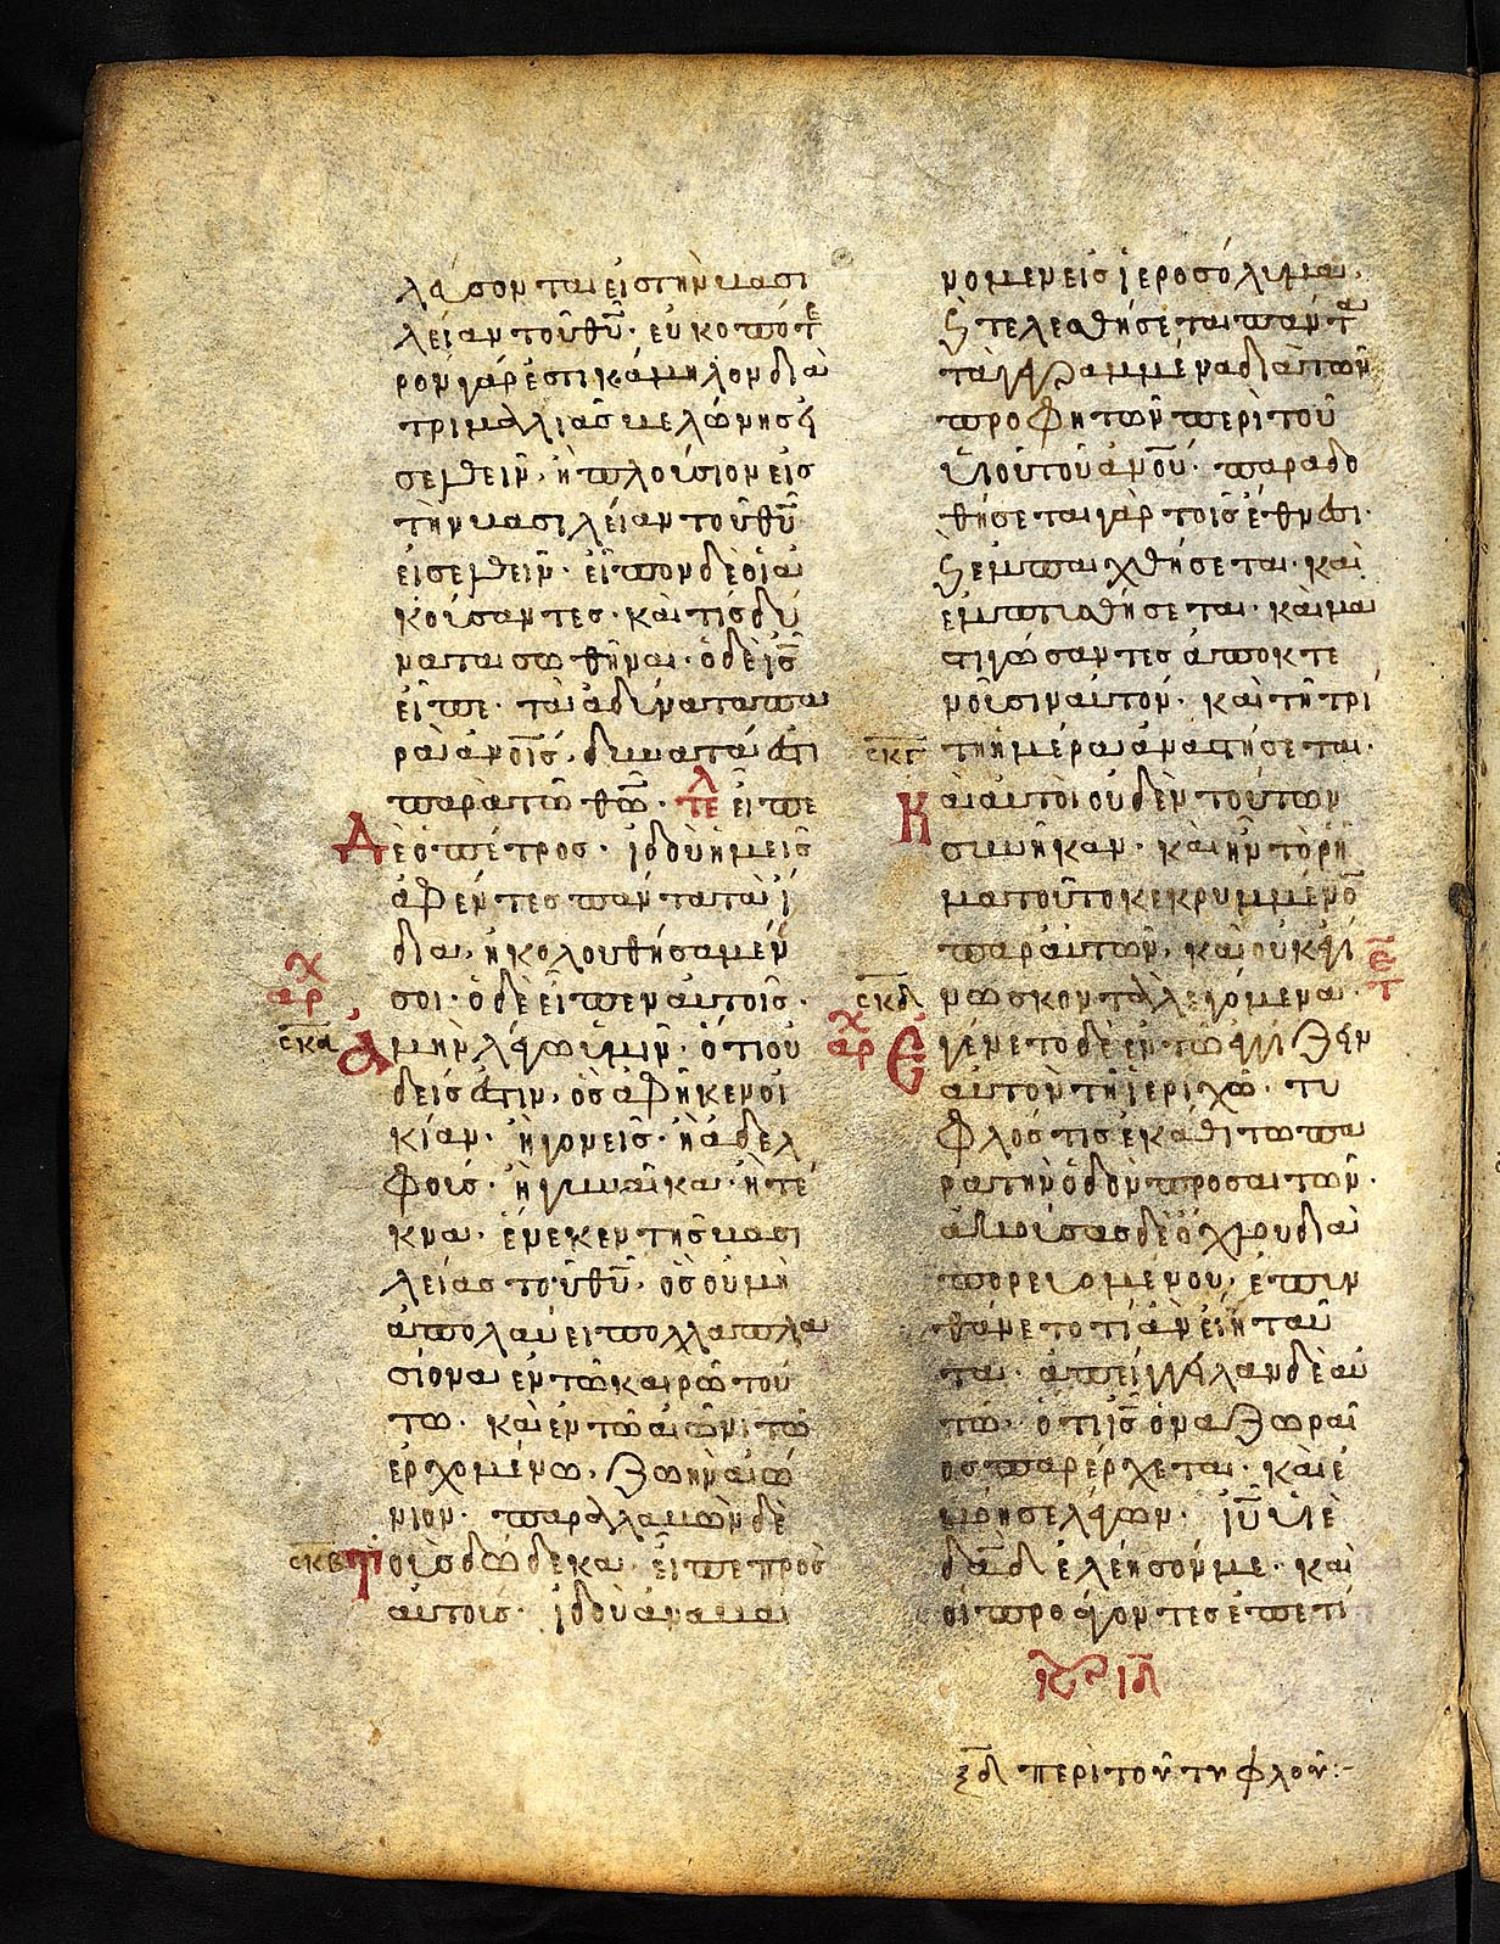 λεύσονται εἰς τὴν βασι
λείαν τοῦ θῡ· εὐκοπώτε
ρον γάρ ἐστι κάμηλον διὰ
τρυμαλιᾶς βελώνης εἰ
σελθεῖν, ἢ πλούσιον εἰς
τὴν βασιλείαν τοῦ θῡ
εἰσελθεῖν· εἶπον δὲ οἱ ἀ
κούσαντες· καὶ τίς δύ
ναται σωθῆναι· ὁ δὲ ις̄
εἶπε· τὰ ἀδύνατα πα
ρὰ ἀνοῖς, δυνατά ἐστι
παρὰ τῶ θῶ· τελ εἶπε
Δὲ ὁ πέτρος· ἰδοὺ ἡμεῖς
ἀφέντες πάντα τὰ ἴ
δια, ἠκολουθήσαμέν
αρχ
σοι· ὁ δὲ εἶπεν αὐτοῖς·
σκα Ἀμὴν λέγω ὑμῖν· ὅτι οὐ
δείς ἐστιν, ὃς ἀφῆκεν οἰ
κίαν· ἢ γονεῖς· ἢ ἀδελ
φούς· ἢ γυναῖκα· ἢ τέ
κνα· ἕνεκεν τῆς βασι
λείας τοῦ θῡ, ὃς οὐ μὴ
ἀπολάβει πολλαπλα
σίονα ἐν τῶ καιρῶ τού
τω· καὶ ἐν τῶ αἰῶνι τῶ
ἐρχομένω, ζωὴν αἰώ
νιον· παραλαβὼν δὲ
σκβ Τοὺς δώδεκα εἶπε πρὸς
αὐτούς· ἰδοὺ ἀναβαί
νομεν εἰς ἱεροσόλυμα,
ϗ τελεσθήσεται πάντα
τὰ γεγραμμένα διὰ τῶν
προφητῶν περὶ τοῦ
υἱοῦ τοῦ ἀνοῦ· παραδο
θήσεται γὰρ τοῖς ἔθνεσι·
ϗ ἐμπαιχθήσεται· καὶ
ἐμπτυσθήσεται· καὶ μα
στιγώσαντες ἀποκτε
νοῦσιν αὐτόν· καὶ τῆ τρί
σκγ τη ἡμέρα ἀναστήσεται·
Καὶ αὐτοὶ οὐδὲν τούτων
συνῆκαν· καὶ ἦν τὸ ρῆ
μα τοῦτο κεκρυμμένο̄
παρ' αὐτῶν, καὶ οὐκ ἐγί
σκδ νωσκον τὰ λεγόμενα·
αρχ Ἐγένετο δὲ ἐν τῶ ἐγγίζειν
αὐτὸν τῆ ἱεριχῶ· τυ
φλός τις ἐκάθιτω πα
ρα τὴν ὁδὸν προσαιτῶν·
ἀκούσας δὲ ὄχλου δια
πορευομένου, ἐπυν
θάνετο τί ἂν εἴη ταῦ
τα· ἀπείγγειλαν δὲ αὐ
τῶ· ὅτι ις̄ ὁ ναζωραῖ
ος παρέρχεται· καὶ ἐ
βόησε λέγων· ιῡ υἱὲ
δᾱδ ἐλέησόν με· καὶ
οἱ προάγοντες ἐπετί
ξδ περὶ τοῦ τυφλοῦ:-